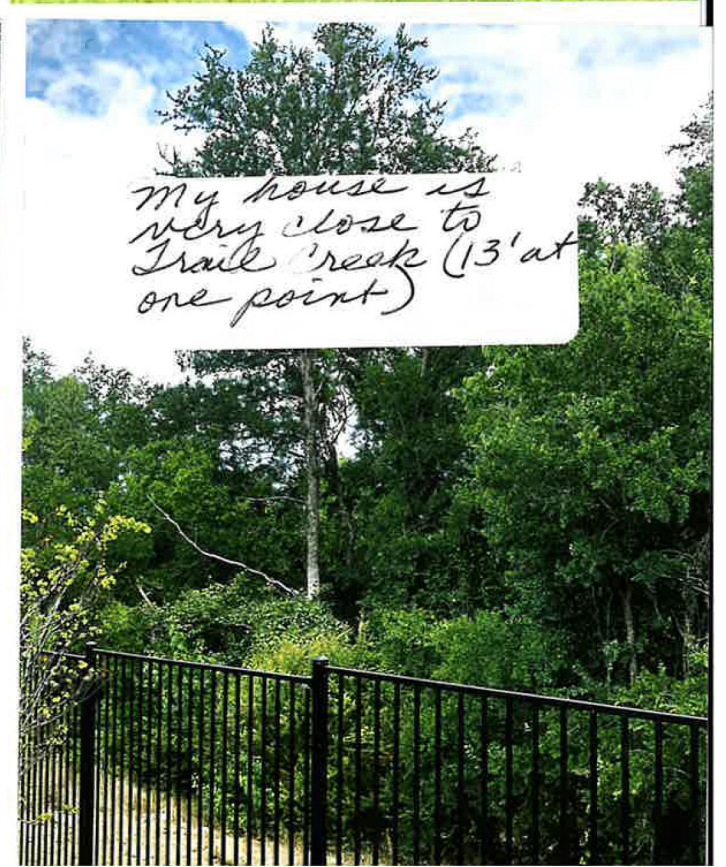 My house is
very close to
Trail Creek (13' at
one point)